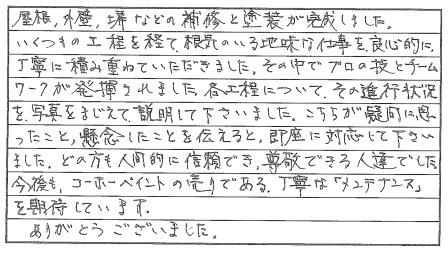 屋根，外壁，塀などの補修と塗装が完成しました。
いくつもの工程を経て，根気のいる地味な仕事を良心的に，
丁寧に積み重ねていただきました。その中でプロの技とチーム
ワークが発揮されました。各工程について，その進行状況
を写真をまじえて，説明して下さいました。こちらが疑問に思
ったこと，懸念したことを伝えると，即座に対応して下さい
ました。どの方も人間的に信頼でき，尊敬できる人達でした。
今後も，コーホーペイントの売りである，丁寧な「メンテナンス」
を期待しています。
ありがとうございました。